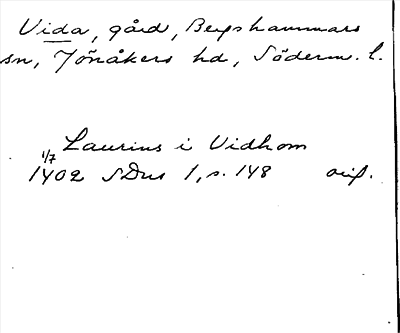 Vida, gård, Bergshammars
sn, Jönåkers hd, Söderm. l.
Laurius i Vidhom
1/7
1402 SDns 1, s. 148 orig.